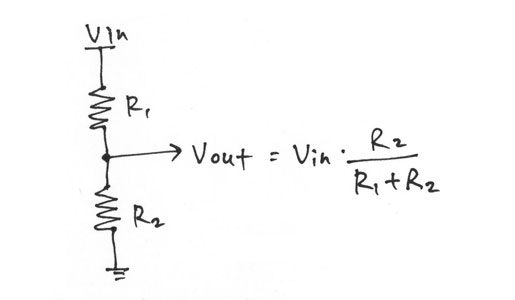 Vin
R₁
Vout = Vin · R₂ / (R₁ + R₂)
R₂